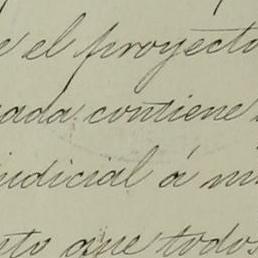 e el proyecto
ada contiene
udicial á mi
to que todos